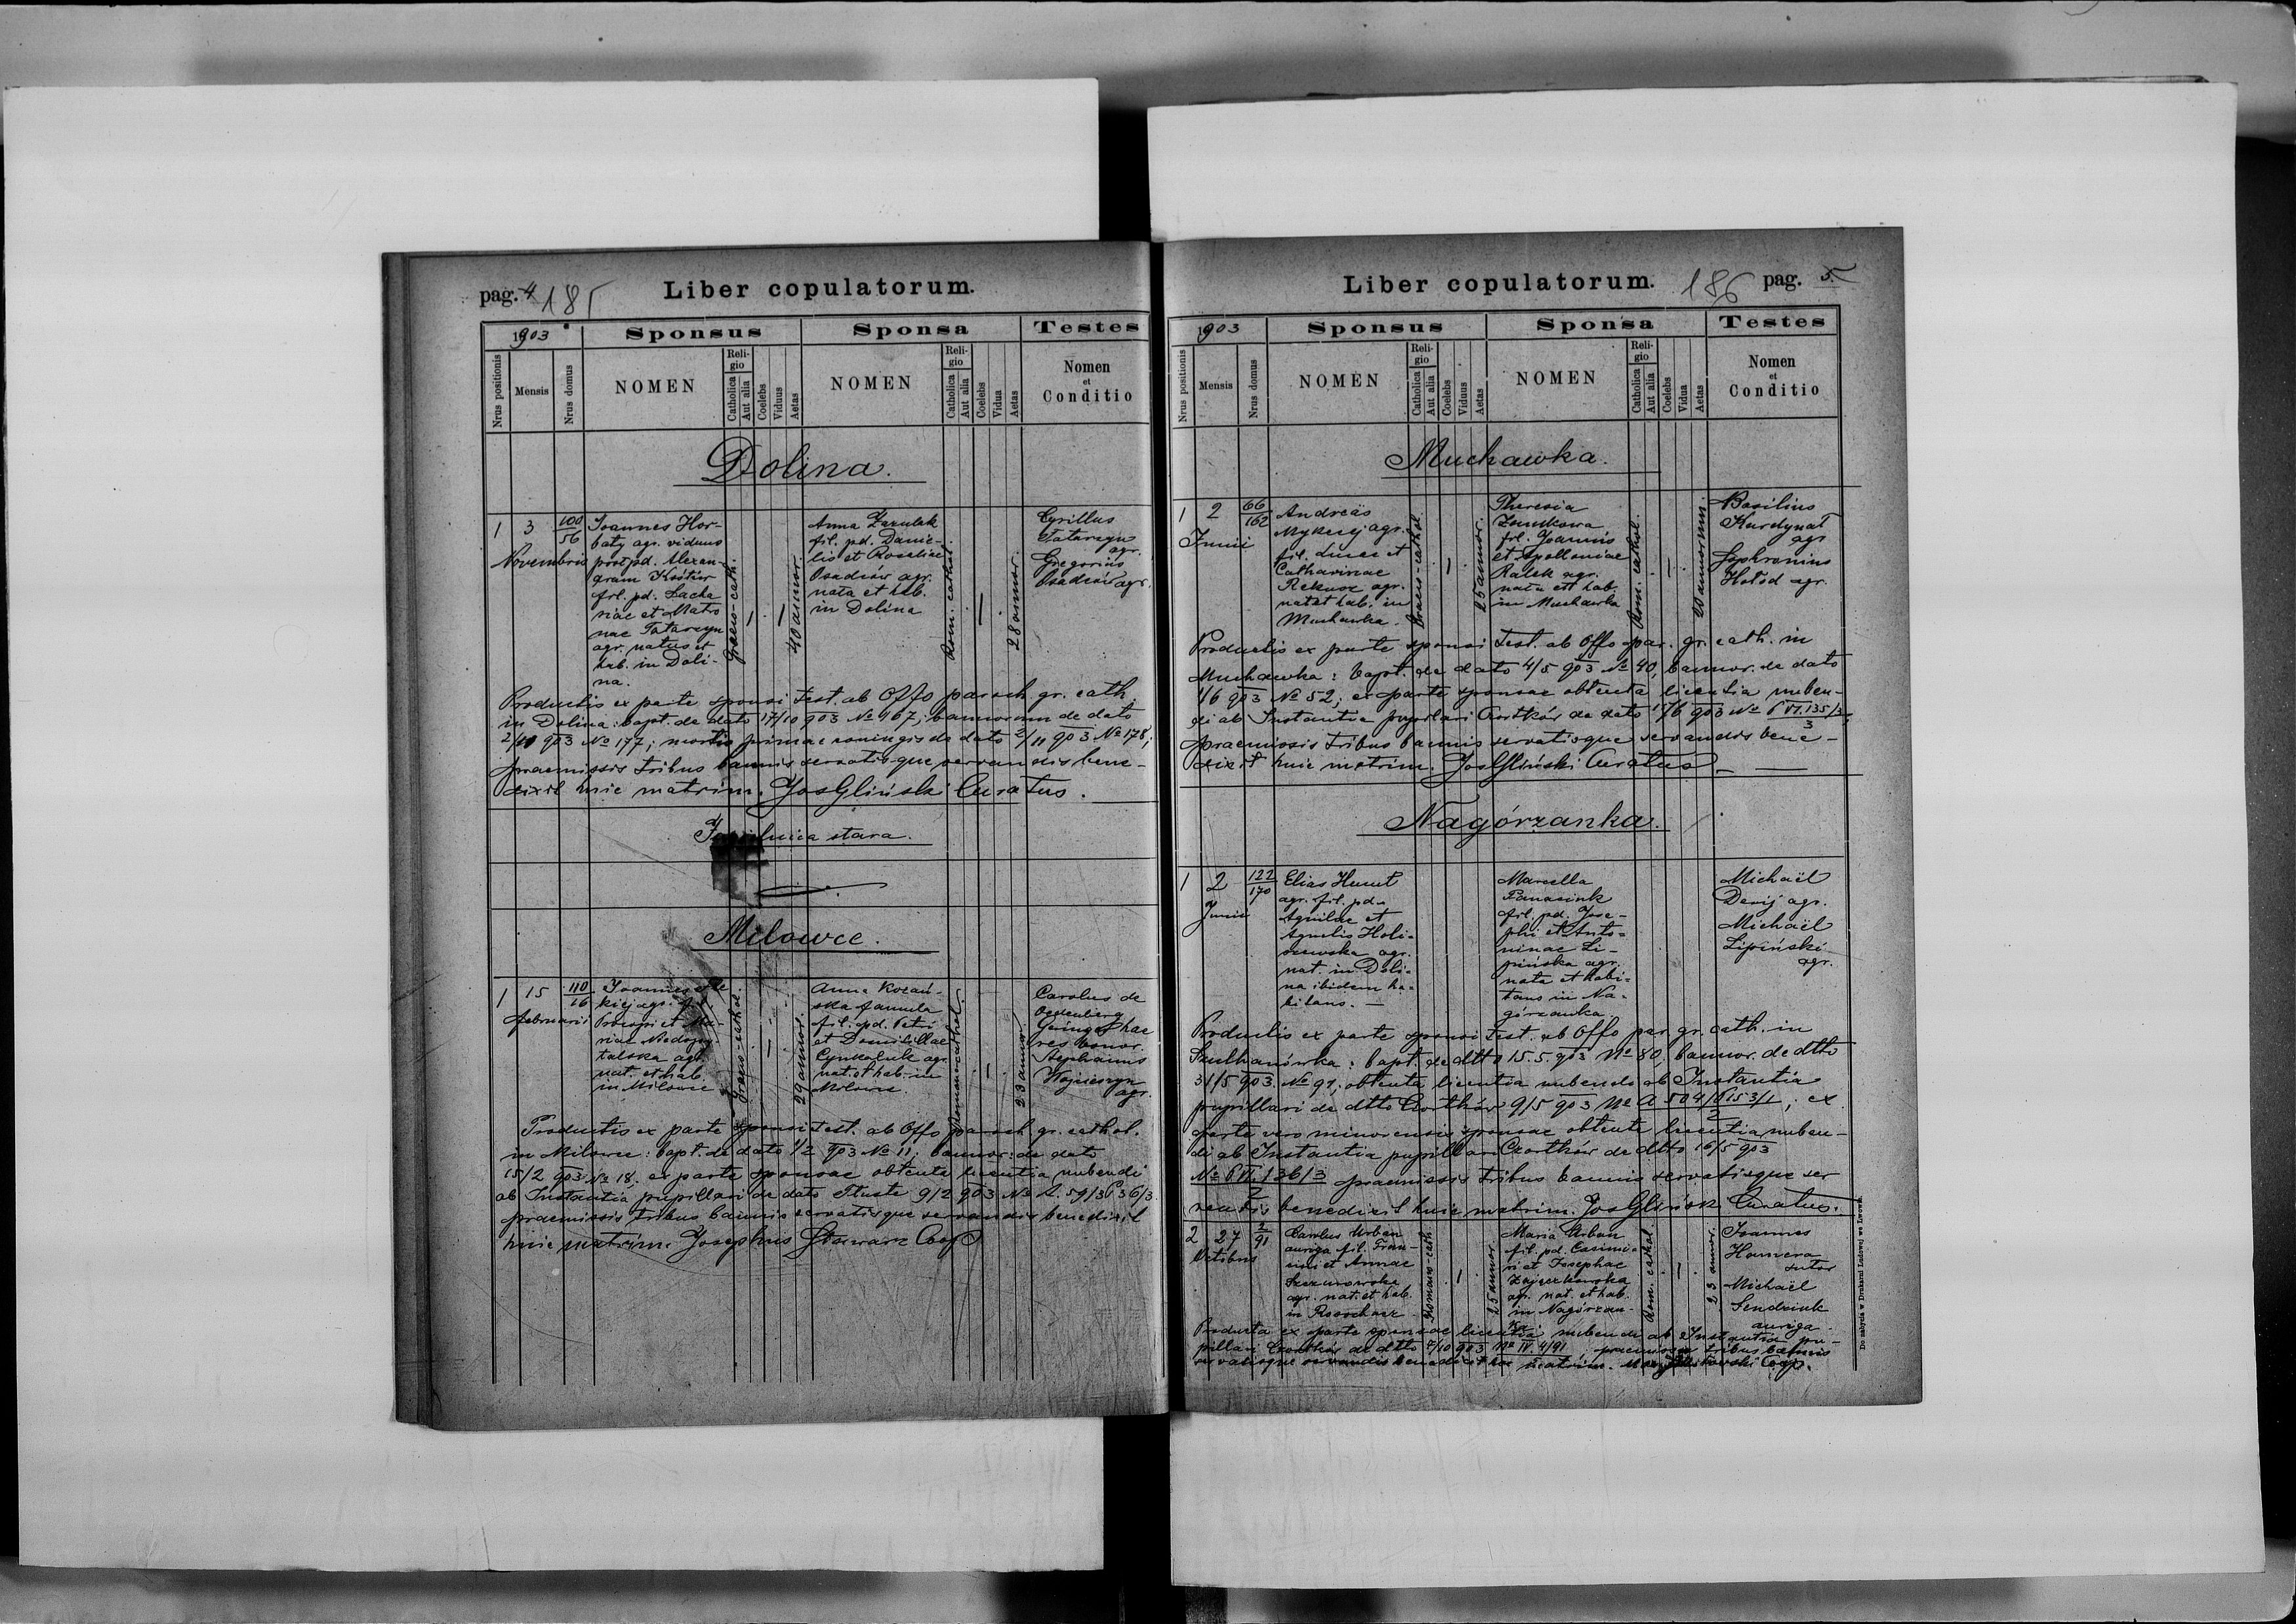 pag. 4 185
Liber copulatorum.
1903
Sponsus
Sponsa
Testes
Nrus positionis
Mensis
Nrus domus
NOMEN
Religio
Catholica
Aut alia
Coelebs
Viduus
Aetas
NOMEN
Religio
Catholica
Aut alia
Coelebs
Vidua
Aetas
Nomen
et
Conditio
Dolina.
1
3
Novembris
100
56
Joannes Hor-
baty agr. viduus
post pd. Alexan-
fil. pd. Zacha
riae et Matro
nae Tatarczyn
agr. natus et
hab. in Doli-
na.
Graeco-cath.
40 annor.
Anna
fil. pd. Danie-
lis et Rosaliae
Osadców agr.
nata et hab.
in Dolina
Rom. cathol.
28 annor.
Cyrillus
Tatarczyn
agr.
Gregorius
Osadców agr.
Productis ex parte sponsi Test. ab Offo paroch gr. cath.
in Dolina: bapt. de dato 17/10 903 № 167; bannorum de dato
2/11 903 № 177; mortis primae coniugis de dato 2/11 903 № 178;
praemissis tribus bannis servatisque servandis bene-
dixit huic matrim. Jos Gliński Curatus.
stara.
Milowce.
1
15
februarii
110
16
Joannes
kiej agr. fil.
Procopi et Ma-
riae
talska agr.
nat. et hab.
in Milowce
Graeco-cathol.
29 annor.
Anna Kozań-
ska famula
fil. pd. Petri
et Domicillae
agr.
nat. et hab. in
Milowce.
Romano-cathol.
23 annor.
Carolus de
Stephanus
Wojcieszyn
agr.
Productis ex parte sponsi Test. ab Offo paroch gr. cathol.
in Milowce: bapt. de dato 1/2 903 № 11; bannor: de dato
15/2 903 № 18; ex parte sponsae obtenta licentia nubendi
ab Instantia pupillari de dato Tłuste 9/2 903 № A. 59/3 P 36/3.
praemissis tribus bannis servatisque servandis benedixit
huic matrim. Josephus Coop
Liber copulatorum.
186 pag. 5.
1903
Sponsus
Sponsa
Testes
Nrus positionis
Mensis
Nrus domus
NOMEN
Religio
Catholica
Aut alia
Coelebs
Viduus
Aetas
NOMEN
Religio
Catholica
Aut alia
Coelebs
Vidua
Aetas
Nomen
et
Conditio
Muchawka.
1
2
Junii
66
162
Andreas
Mykery agr.
fil. Lucae et
Catharinae
agr.
nat et hab. in
Muchawka.
Graeco-cathol.
25 annor.
Theresia
fil. Joannis
et Apolloniae
agr.
nata et hab.
in Muchawka
Rom. cathol.
20 annor min.
Basilius
Kurdynat
agr
Sophronius
Hołod agr.
Productis ex parte sponsi Test. ab Offo par. gr. cath. in
Muchawka: bapt. de dato 4/5 903 № 40, bannor. de dato
1/6 903 № 52; ex parte sponsae obtenta licentia nuben-
di ab Instantia pupillari Czortków de dato 1/6 903 № P VI.135/3
3
praemissis tribus bannis servatisque servandis bene-
dixit huic matrim. Jos Gliński Curatus
Nagórzanka.
1
2
Junii
122
170
Elias Humt
agr. fil. pd.
Aquilae et
Agnetis Holi-
szewska agr.
nat. in Doli-
na ibidem ha-
bitans.
Marcella
Panasiuk
fil. pd. Jose-
phi et Anto-
ninae Li-
pińska agr.
nata et habi-
tans in Na-
górzanka.
Michaël
agr.
Michaël
Lipiński
agr.
Productis ex parte sponsi Test. ab Offo par. gr. cath. in
Szulhanówka: bapt. de dtto 15.5. 903 № 80; bannor. de dtto
31/5 903 № 91; obtenta licentia nubendi ab Instantia
pupillari de dtto Czortków 9/5 903 № A 504/ 153/1; ex
2
parte vero minorensis sponsae obtenta licentia nuben-
di ab Instantia pupillari Czortków de dtto 16/5 903
№ P VI. 136/3 praemissis tribus bannis servatisque ser
2
vandis benedixit huic matrim. Jos Gliński Curatus.
2
27
Octobris
2
91
Carolus Urban
auriga fil. Fran-
cisci et Annae
agr. nat. et hab.
in Rosochacz
Romano-cath
25 annor
Maria Urban
fil. pd. Casimi-
ri et Josephae
Zajączkowska
agr. nat. et hab.
in Nagórzan-
ka.
Rom. cathol
23 annor.
Joannes
Hamera
sutor
Michaël
Sendziuk
auriga.
Producta ex parte sponsae licentia nubendi ab Instantia pu-
pillari Czortków de dtto 7/10 903 № IV. 4/91, praemissis tribus bannis
servatisque servandis benedixit hoc matrim. Coop.
Do nabycia w Drukarni Ludowej we Lwowie.